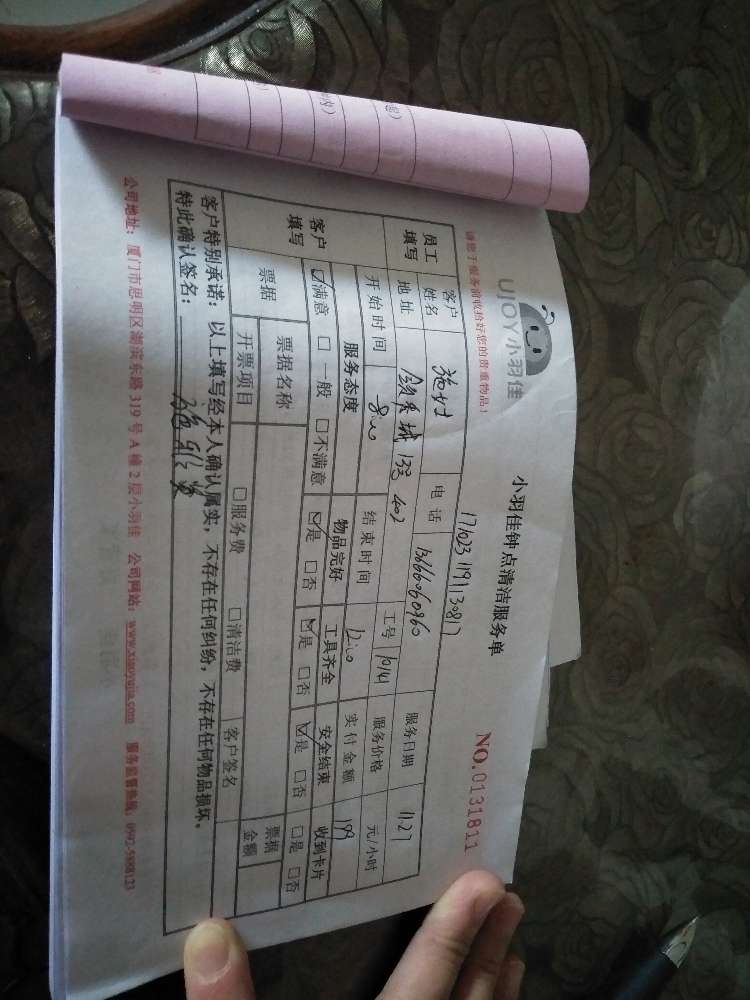 UJOY小羽佳
小羽佳钟点清洁服务单
请您于服务前收拾好您的贵重物品!
171023119130817
NO.0131811
员工填写
客户姓名 施女士 电话 13666060960 服务日期 11.27
地址 133 402 工号 10141 服务价格 元/小时
开始时间 8:00 结束时间 12:00 实付金额 199
客户填写
服务态度 物品完好 工具齐全 安全结束 收到卡片
☑满意 □一般 □不满意 ☑是 □否 ☑是 □否 ☑是 □否 □是 □否
票据 票据名称 票据金额
开票项目 □服务费 □清洁费 客户签名
客户特别承诺:以上填写经本人确认属实,不存在任何纠纷,不存在任何物品损坏。
特此确认签名:
公司地址:厦门市思明区湖滨东路319号A幢2层小羽佳 公司网站:www.xiaoyujia.com 服务监督热线:0592-5988123